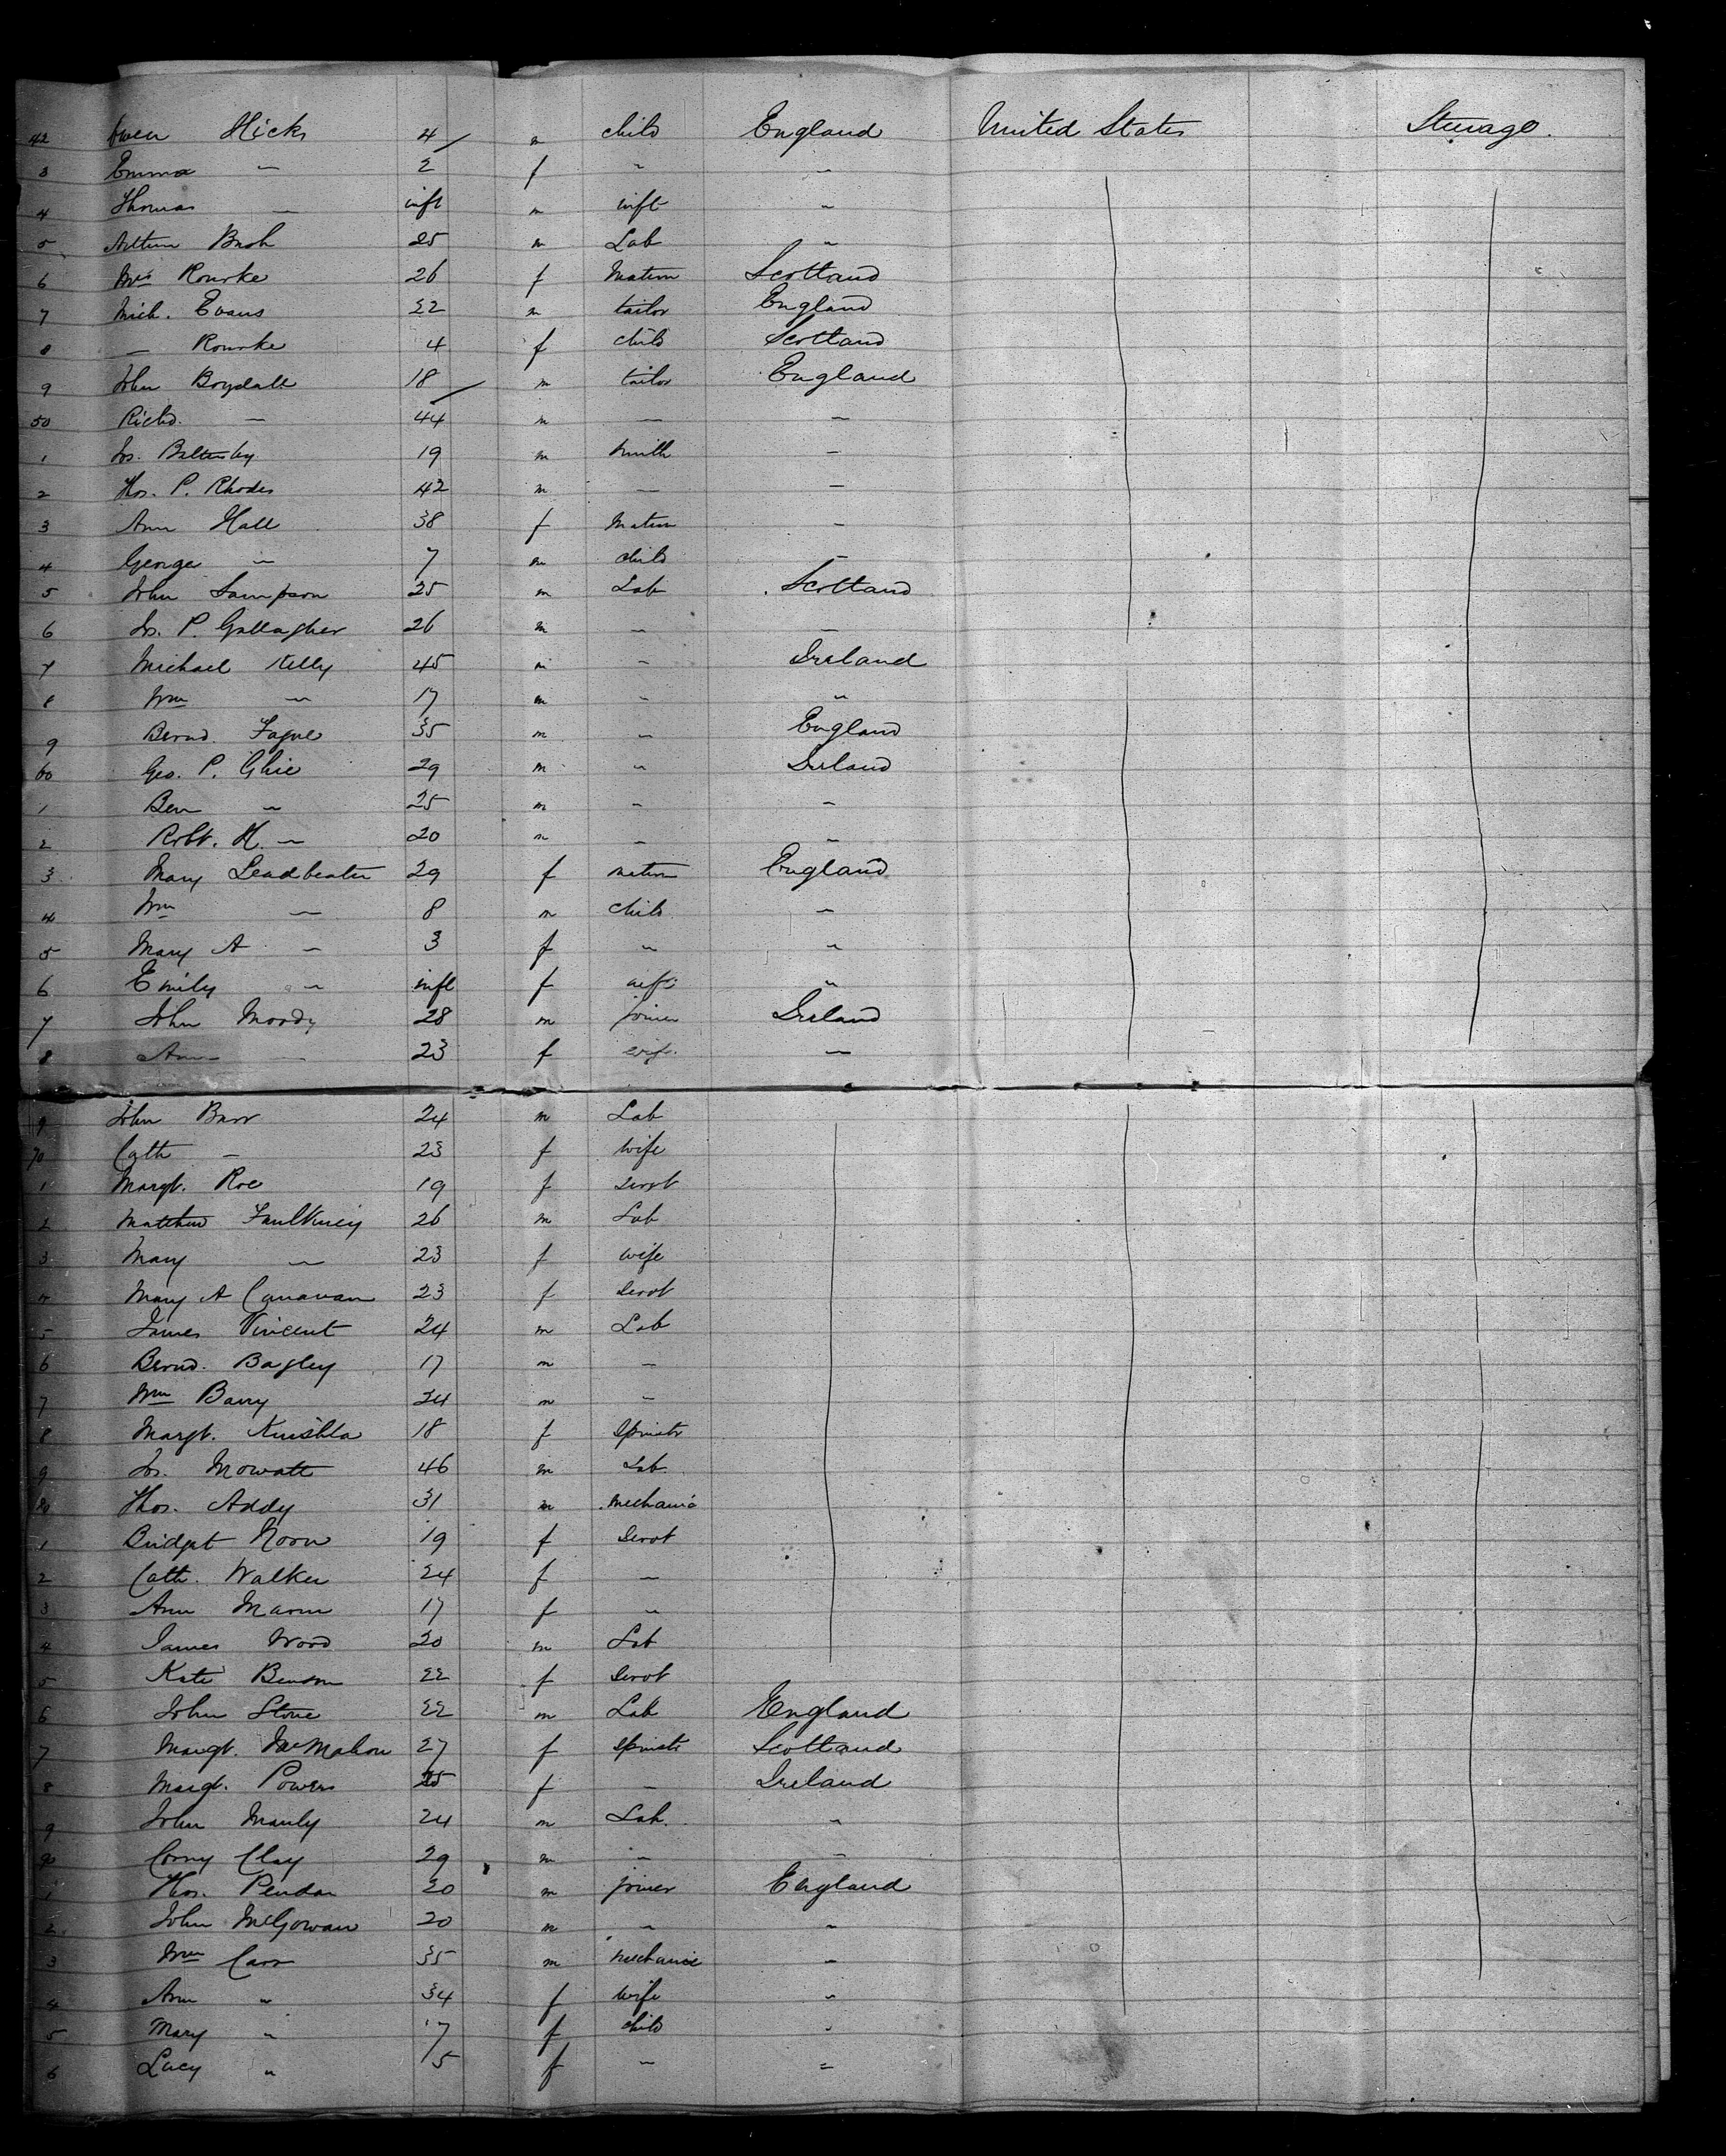 42 Owen Hicks 4 m child England United States Steerage
3 Emma " 2 f " "
4 Thomas " inft m inft "
5 Arthur Bush 25 m Lab "
6 Mrs Rourke 26 f Matron Scotland
7 Mich. Evans 22 m tailor England
8 — Rourke 4 f child Scotland
9 John Boydall 18 m tailor England
50 Richd. — 44 m — —
1 Jos. 19 m Smith —
2 Thos. P. Rhodes 42 m — —
3 Ann Hall 38 f Matron —
4 George — 7 m child —
5 John Sampson 25 m Lab Scotland
6 Jos. P. Gallagher 26 m — —
7 Michael Kelly 45 m — Ireland
8 Wm — 17 m — "
9 Bernd. Fagne 35 m — England
60 Geo. P. Ghie 29 m " Ireland
1 Ben " 25 m " "
2 Robt. H. — 20 m — "
3 Mary Leadbeater 29 f matron England
4 Wm — 8 m child —
5 Mary A — 3 f " "
6 Emily " inft f inft "
7 John Moody 28 m joiner Ireland
8 Ann — 23 f wife —
9 John Barr 24 m Lab
70 Cath — 23 f wife
1 Margt. Roe 19 f servt
2 Matthew Faulkney 26 m Lab
3 Mary — 23 f wife
4 Mary A Canavan 23 f servt
5 James Vincent 24 m Lab
6 Bernd. Bagley 17 m —
7 Wm Barry 24 m "
8 Margt. 18 f Spinstr
9 Jos. Mowatt 46 m Lab
80 Thos. Addy 31 m mechanic
1 Bridget Noon 19 f servt
2 Cath. Walker 24 f —
3 Ann 17 f "
4 James Wood 20 m Lab
5 Kate Benson 22 f servt
6 John Stone 22 m Lab England
7 Margt. McMahon 27 f Spinstr Scotland
8 Margt. Powers 25 f — Ireland
9 John Manly 24 m Lab. "
90 Corny Clay 29 m — "
1 Thos. 20 m joiner England
2 John McGowan 20 m " "
3 Wm Carr 35 m mechanic "
4 Ann " 34 f wife "
5 Mary " 7 f child "
6 Lucy " 5 f — "